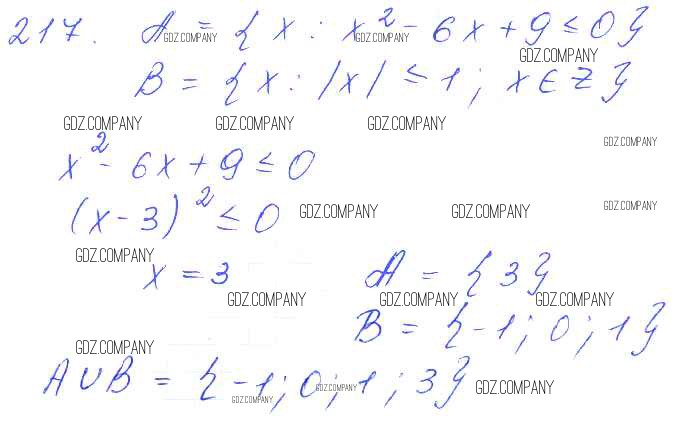 217. A = { x : x² - 6x + 9 ≤ 0 }
GDZ.COMPANY GDZ.COMPANY
GDZ.COMPANY
B = { x : |x| ≤ 1 ; x ∈ Z }
GDZ.COMPANY GDZ.COMPANY GDZ.COMPANY
GDZ.COMPANY
x² - 6x + 9 ≤ 0
(x - 3)² ≤ 0 GDZ.COMPANY GDZ.COMPANY GDZ.COMPANY
GDZ.COMPANY
x = 3 A = { 3 }
GDZ.COMPANY GDZ.COMPANY GDZ.COMPANY
B = { -1 ; 0 ; 1 }
GDZ.COMPANY
A ∪ B = { -1 ; 0 ; 1 ; 3 } GDZ.COMPANY
GDZ.COMPANY GDZ.COMPANY